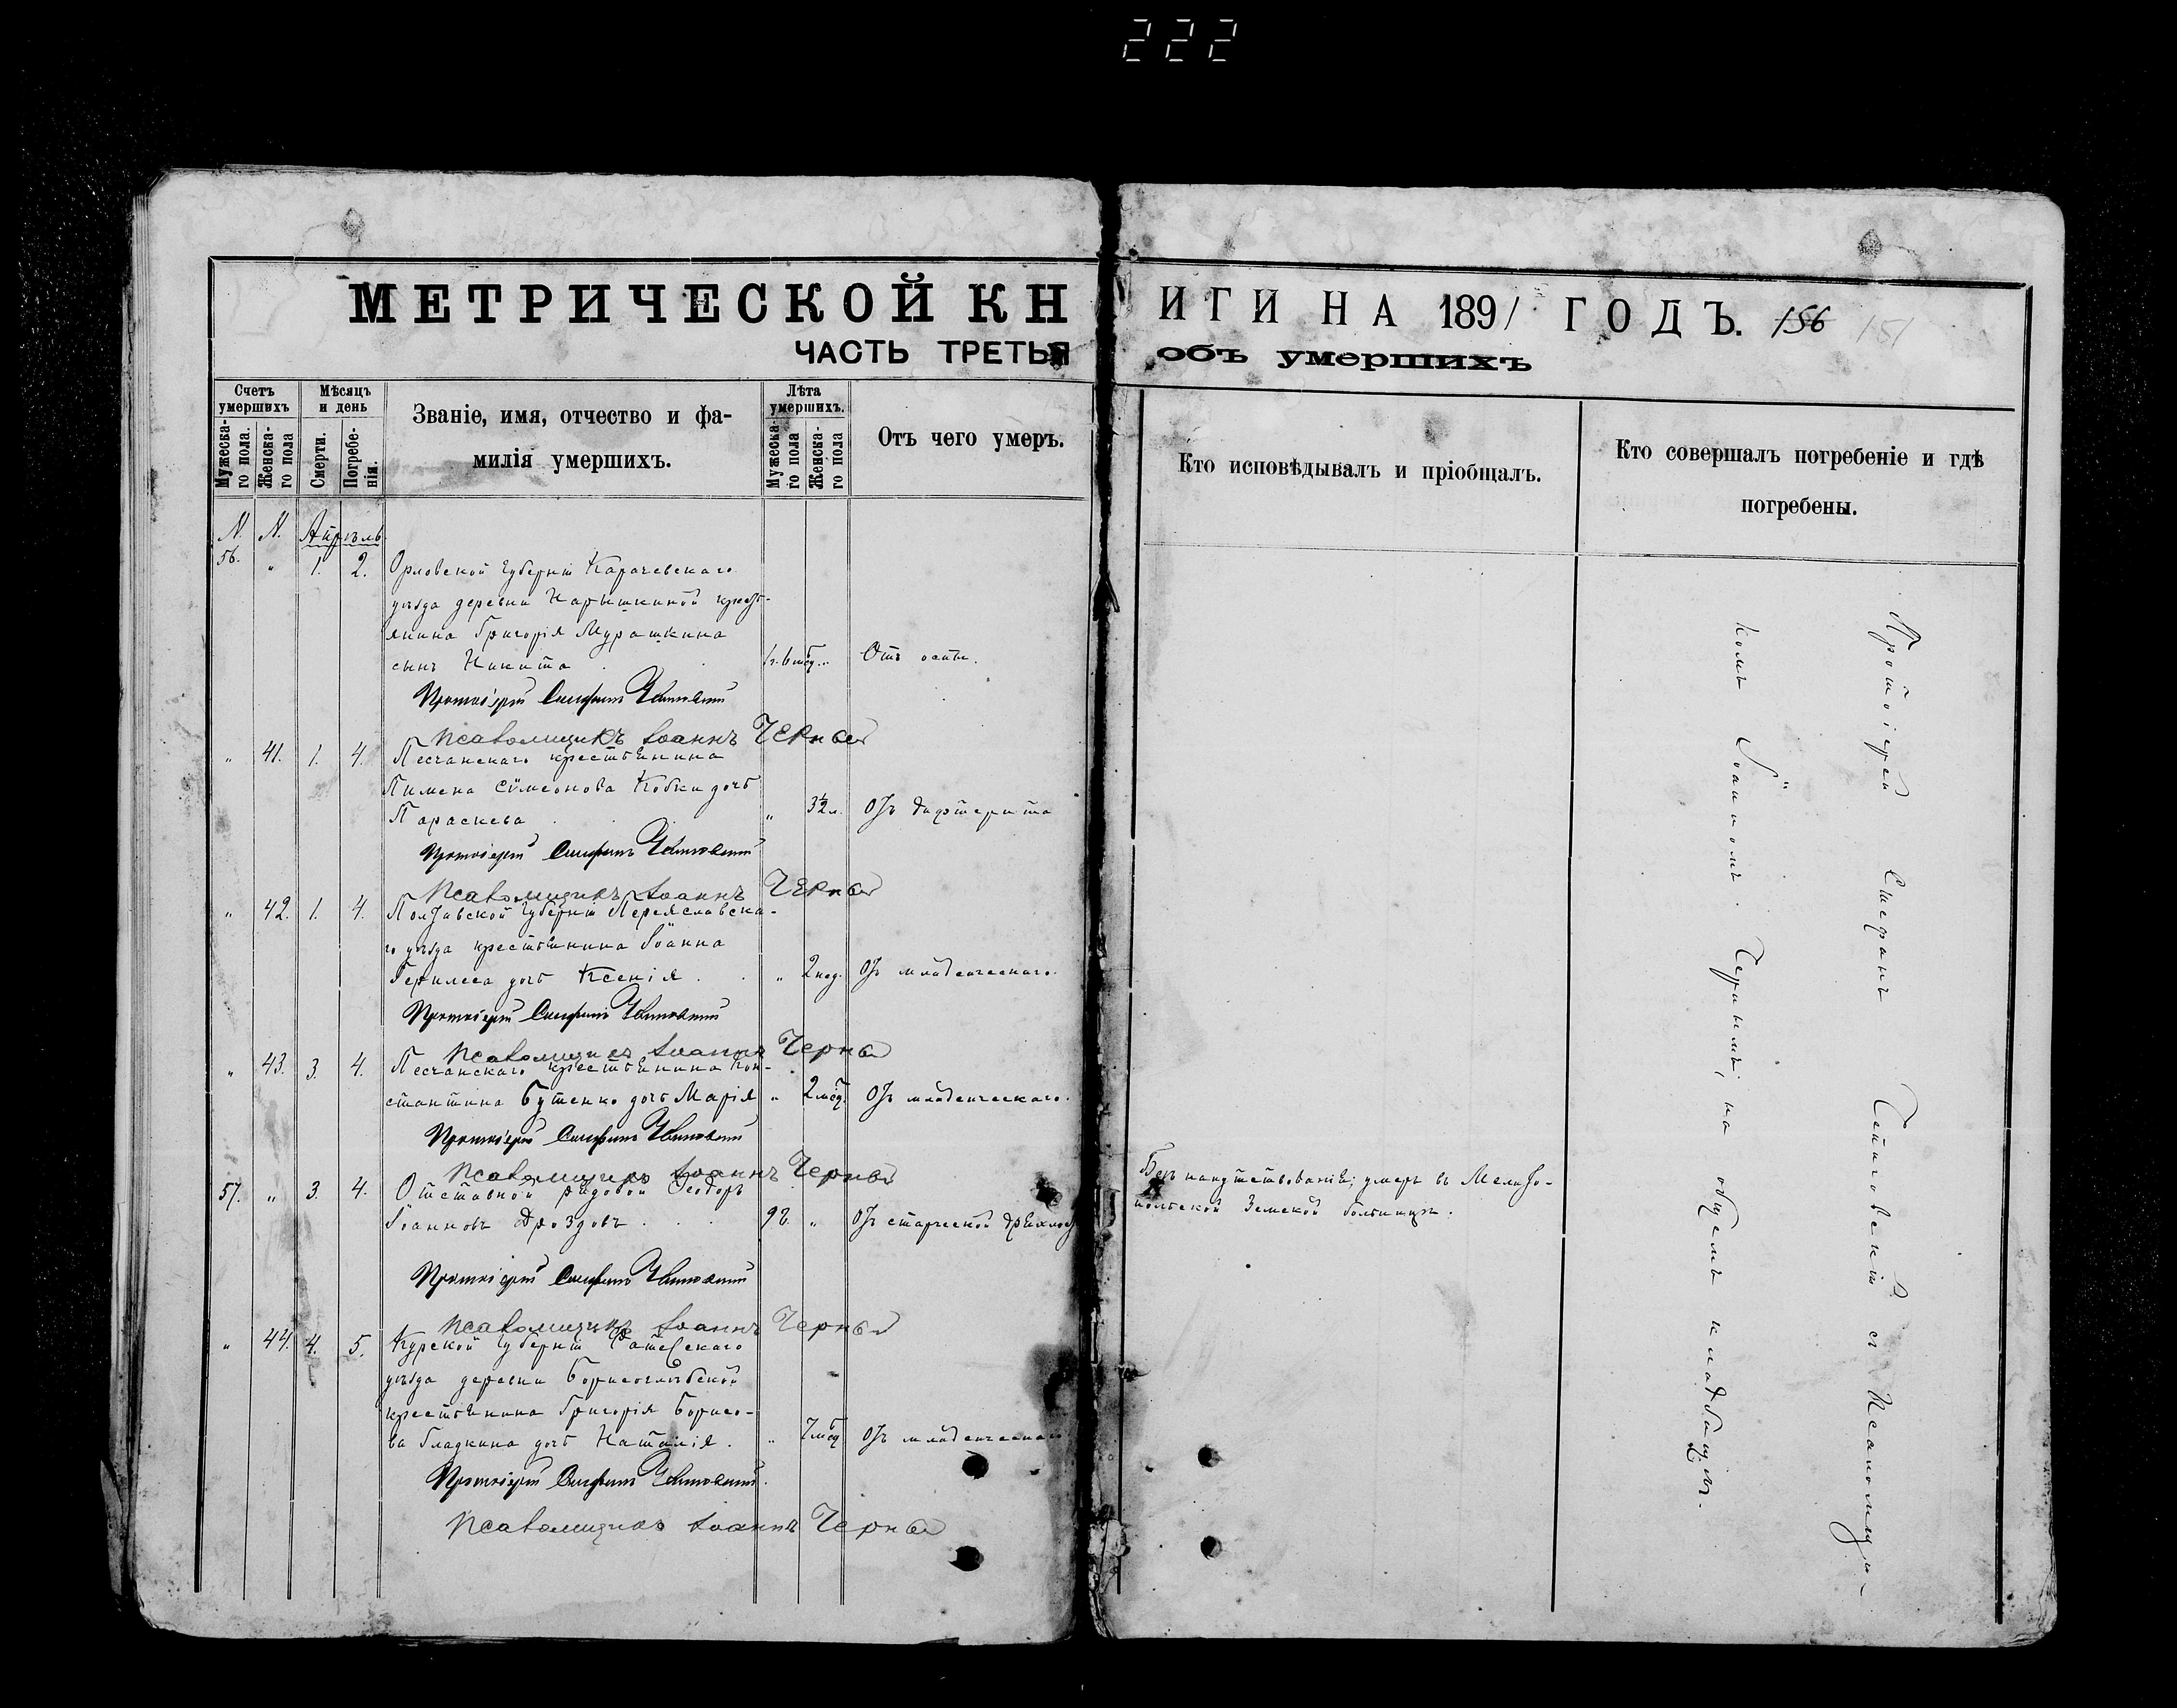 222
МЕТРИЧЕСКОЙ КНИГИ НА 1891 ГОДЪ. 156 151
ЧАСТЬ ТРЕТЬЯ объ умершихъ
Счетъ умершихъ
Мужеска-го пола.
Женска-го пола
Мѣсяцъ и день
Смерти.
Погребе-нія.
Званіе, имя, отчество и фа-
милія умершихъ.
Лѣта умершихъ.
Мужеска-го пола
Женска-го пола
Отъ чего умеръ.
Кто исповѣдывалъ и пріобщалъ.
Кто совершалъ погребеніе и гдѣ
погребены.
N. N. Апрѣль
56. " 1. 2. Орловской губерніи Карачевскаго
уѣзда деревни Нарышкиной кресть-
янина Григорія Мурашкина
сынъ Никита 1 г. 6 мсц. " Отъ оспы.
Протоіерей Стефанъ
Псаломщикъ Іоаннъ Черный
" 41. 1. 4. Песчанскаго крестьянина
Пимена Сѵмеонова Кобки дочь
Параскева " 3½ л. Отъ дифтерита
Протоіерей Стефанъ
Псаломщикъ Іоаннъ Черный
" 42. 1. 4. Полтавской губерніи Переяславска-
го уѣзда крестьянина Іоанна
дочь Ксенія " 2 нед. Отъ младенческаго.
Протоіерей Стефанъ
Псаломщикъ Іоаннъ Черный
" 43. 3. 4. Песчанскаго крестьянина Кон-
стантина Бутенко дочь Марія " 2 мсц. Отъ младенческаго.
Протоіерей Стефанъ
Псаломщикъ Іоаннъ Черный
57. " 3. 4. Отставной рядовой Ѳеодоръ
Іоанновъ Дроздовъ 92. " Отъ старческой дряхлос
Протоіерей Стефанъ
Псаломщикъ Іоаннъ Черный
Безъ напутствованія; умеръ въ Мелито-
польской Земской больницѣ.
" 44. 4. 5. Курской губерніи Фатежскаго
уѣзда деревни Борисоглѣбской
крестьянина Григорія Борисо-
ва Гладкина дочь Наталія. " 7 мсц. Отъ младенческаго
Протоіерей Стефанъ
Псаломщикъ Іоаннъ Черный
Протоіерей Стефанъ съ Псаломщи-
комъ Іоанномъ Чернымъ, на общемъ кладбищѣ.